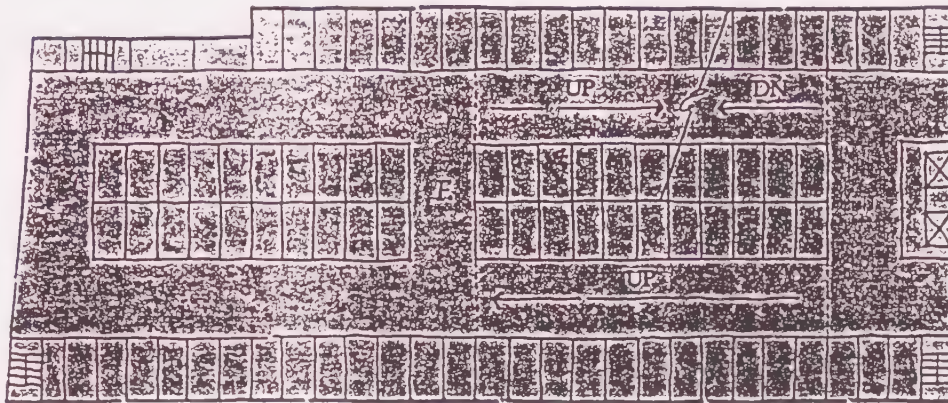 UP DN
F
UP